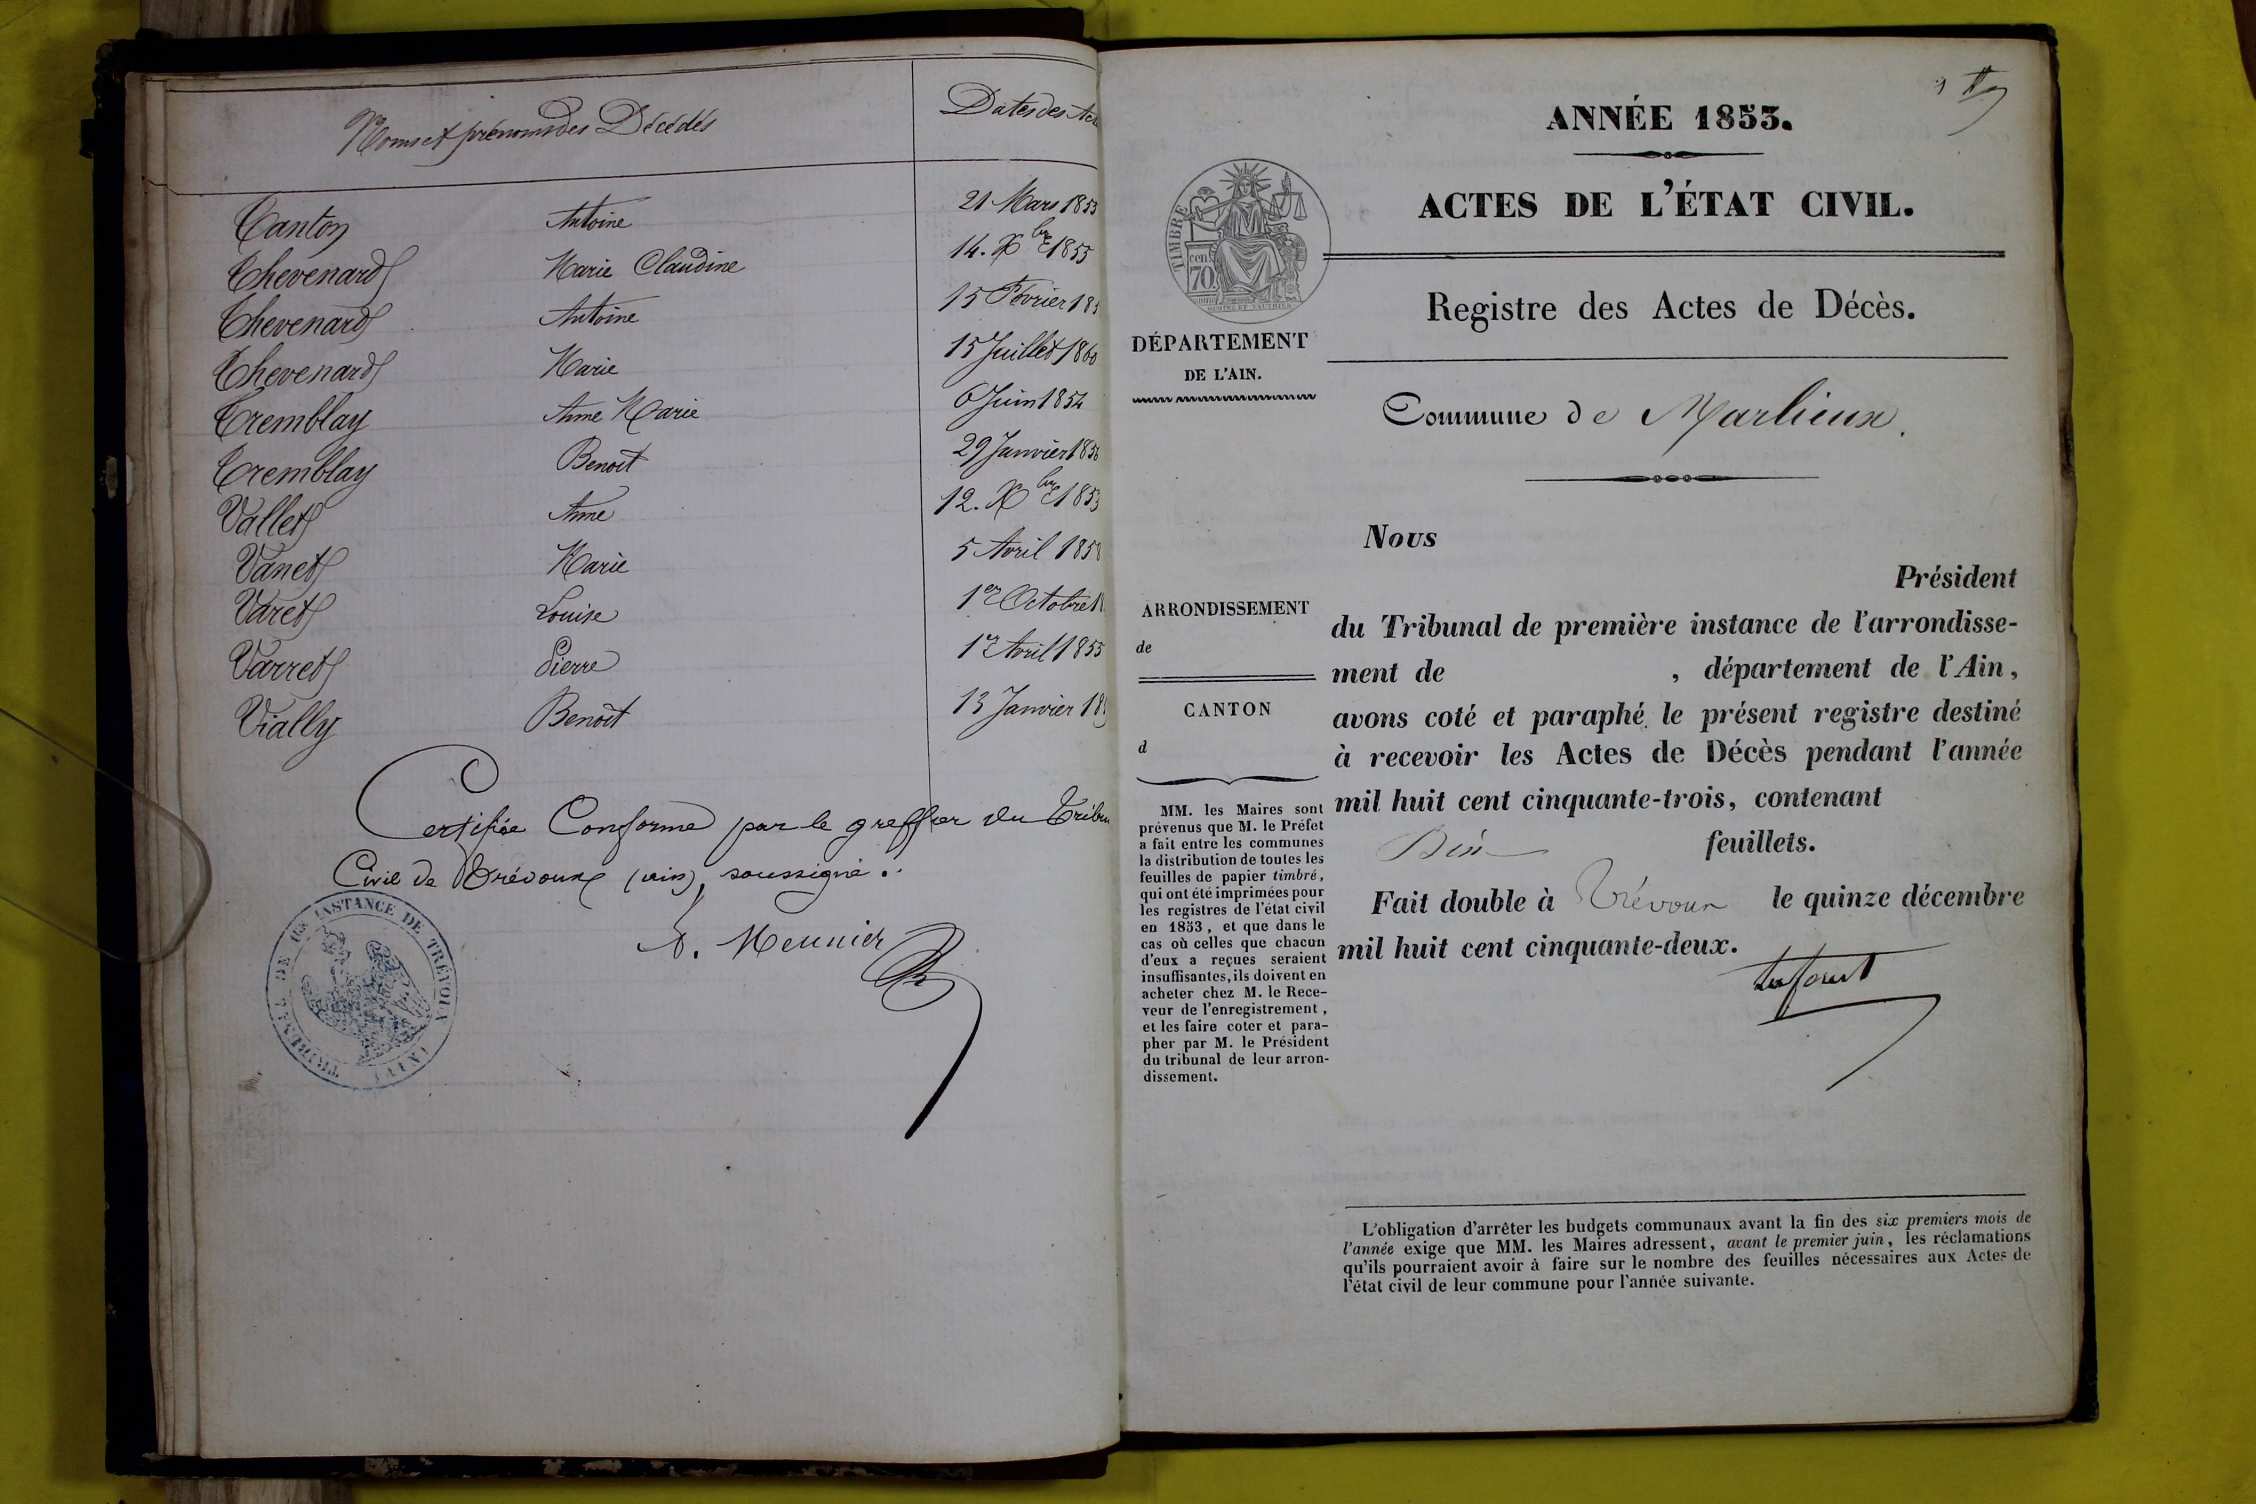 Noms et prénoms des Décédés
Dates des Act
Canton Antoine 21 Mars 1853
Chevenard Marie Claudine 14. Xbre 1855
Thevenard Antoine 15 Février 185
Thevenard Marie 15 Juillet 1860
Tremblay Anne Marie 6 Juin 1854
Tremblay Benoit 29 Janvier 185
Vallet Anne 12. Xbre 1853
Vanet Marie 5 Avril 1858
Varet Louise 1er Octobre 1
Varret Pierre 1er Avril 1855
Vially Benoît 13 Janvier 185
Certifiée Conforme par le greffier du Tribun
Civil de Trévoux (ain), soussigné.
Meunier
TRIBUNAL DE 1RE INSTANCE DE TRÉVOUX (AIN)
ANNÉE 1853.
ACTES DE L'ÉTAT CIVIL.
TIMBRE
cen
70
Registre des Actes de Décès.
DÉPARTEMENT
DE L'AIN.
Commune de Marlieux.
Nous
Président
du Tribunal de première instance de l'arrondisse-
ment de , département de l'Ain,
avons coté et paraphé le présent registre destiné
à recevoir les Actes de Décès pendant l'année
mil huit cent cinquante-trois, contenant
feuillets.
Fait double à Trévoux le quinze décembre
mil huit cent cinquante-deux.
ARRONDISSEMENT
de
CANTON
d
MM. les Maires sont
prévenus que M. le Préfet
a fait entre les communes
la distribution de toutes les
feuilles de papier timbré,
qui ont été imprimées pour
les registres de l'état civil
en 1853, et que dans le
cas où celles que chacun
d'eux a reçues seraient
insuffisantes, ils doivent en
acheter chez M. le Rece-
veur de l'enregistrement,
et les faire coter et para-
pher par M. le Président
du tribunal de leur arron-
dissement.
L'obligation d'arrêter les budgets communaux avant la fin des six premiers mois de
l'année exige que MM. les Maires adressent, avant le premier juin, les réclamations
qu'ils pourraient avoir à faire sur le nombre des feuilles nécessaires aux Actes de
l'état civil de leur commune pour l'année suivante.